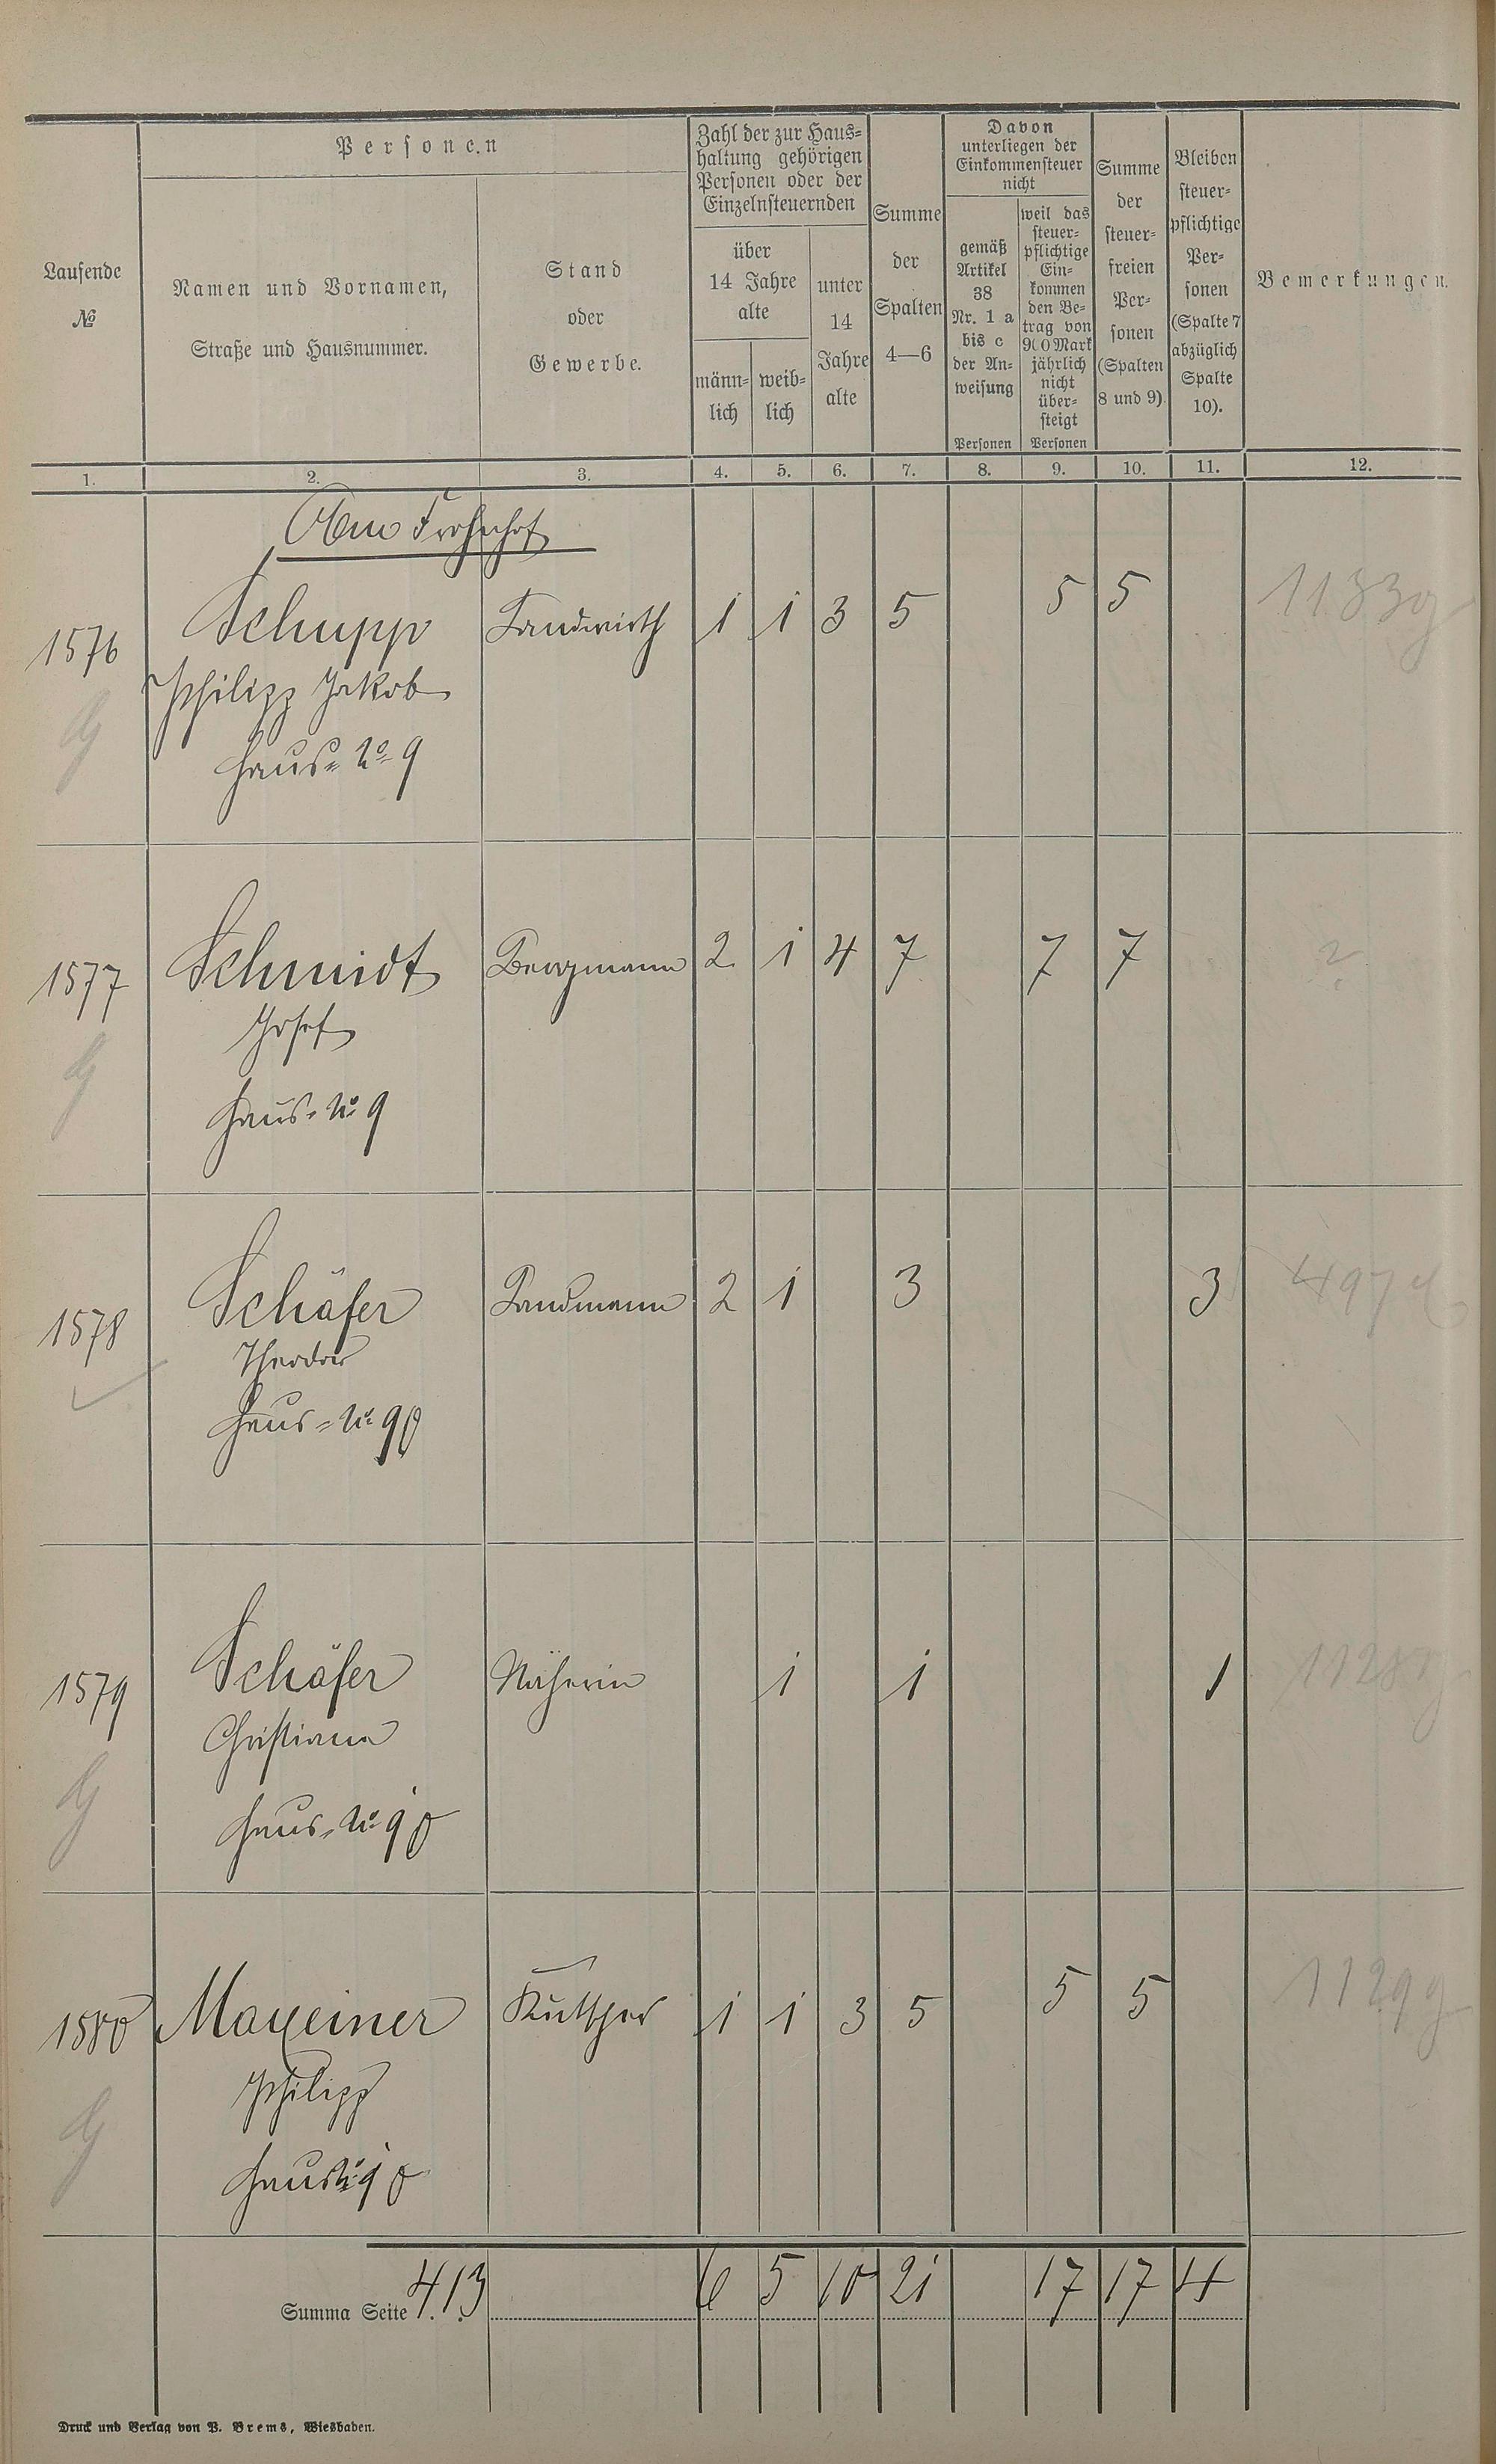 Personen
Zahl der zur Haus-
haltung gehörigen
Personen oder der
Einzelnsteuernden
Davon
unterliegen der
Einkommensteuer
nicht
Laufende
№
Namen und Vornamen,
Straße und Hausnummer.
Stand
oder
Gewerbe.
über
14 Jahre
alte
männ-
lich
weib-
lich
unter
14
Jahre
alte
Summe
der
Spalten
4—6
gemäß
Artikel
38
Nr. 1 a
bis c
der An-
weisung
Personen
weil das
steuer-
pflichtige
Ein-
kommen
den Be-
trag von
900 Mark
jährlich
nicht
über-
steigt
Personen
Summe
der
steuer-
freien
Per-
sonen
(Spalten
8 und 9)
Bleiben
steuer-
pflichtige
Per-
sonen
(Spalte 7
abzüglich
Spalte
10).
Bemerkungen.
1. 2. 3. 4. 5. 6. 7. 8. 9. 10. 11. 12.
Am Frohnhof
1576 Schupp Landwirth 1 1 3 5 5 5 1133g
Philipp Jakob
Haus-No 9
1577 Schmidt Bergmann 2 1 4 7 7 7 ?
Josef
Haus-No 9
1578 Schäfer Landmann 2 1 3 3 497
Theodor
Haus-No 90
1579 Schäfer Näherin 1 1 1 1128g
Christiane
Haus-No 90
1580 Maxeiner Kutscher 1 1 3 5 5 5 1129g
Philipp
Haus No 90
Summa Seite 413 6 5 10 21 17 17 4
Druck und Verlag von P. Brems, Wiesbaden.